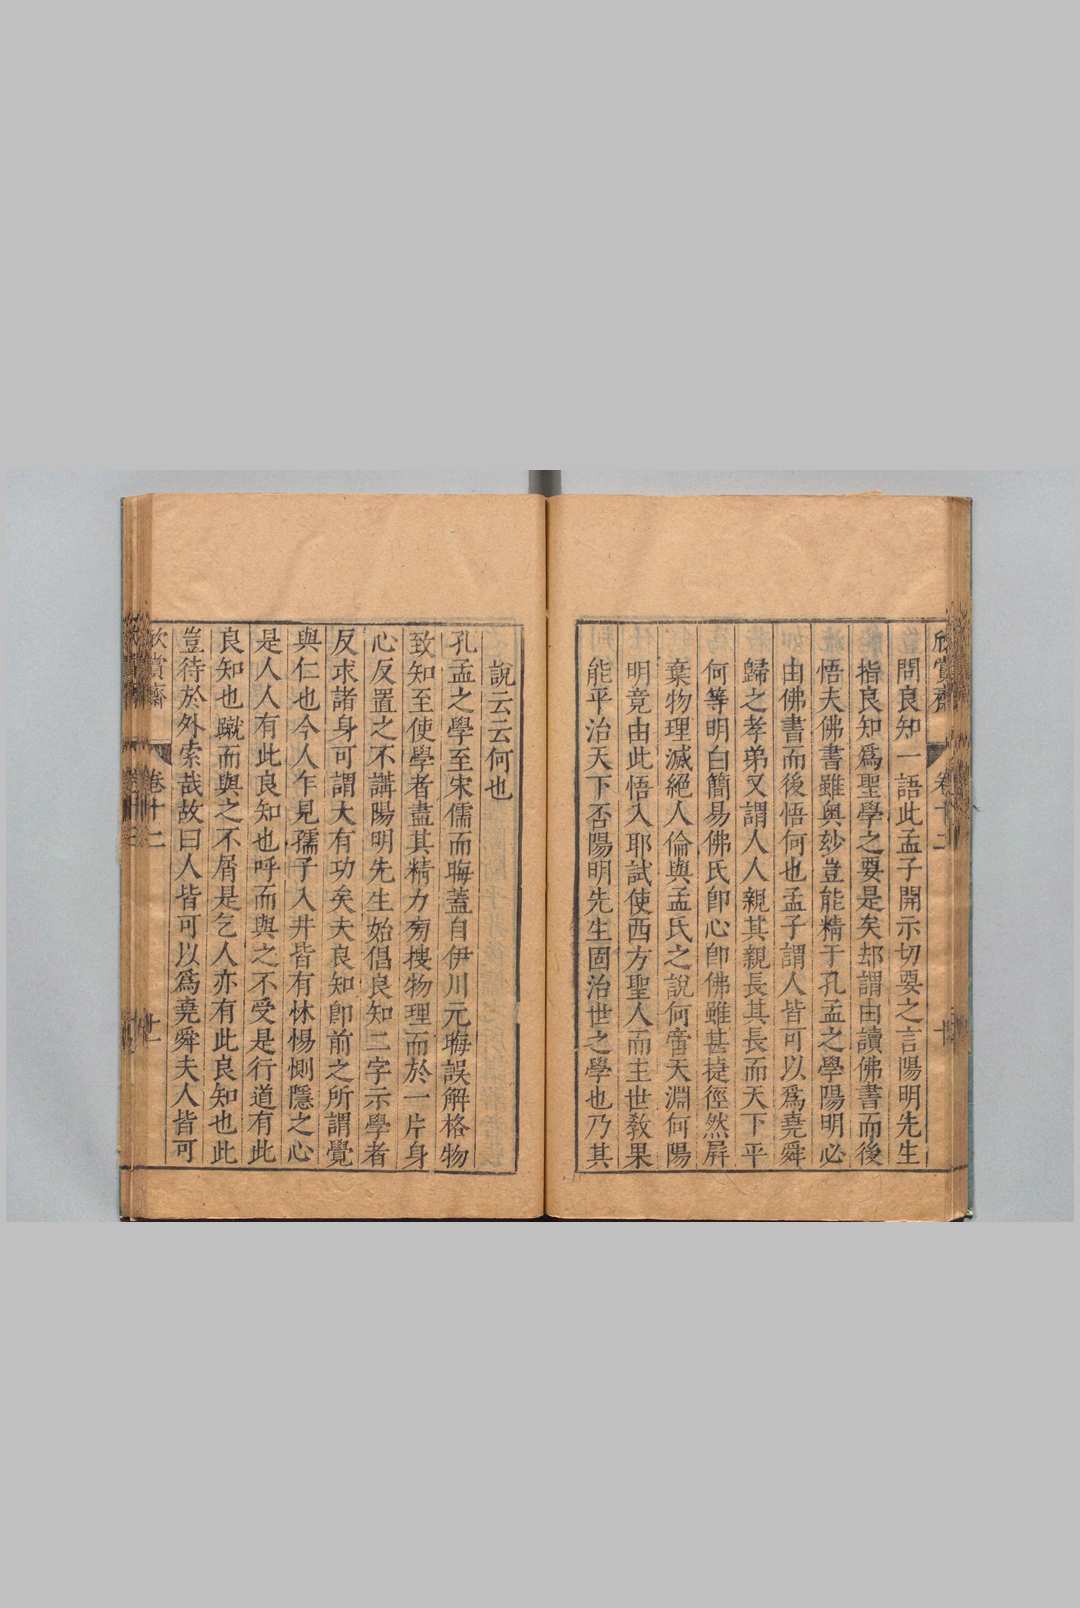 欣賞齋 卷十二 十
問良知一語此孟子開示切要之言陽明先生
指良知爲聖學之要是矣却謂由讀佛書而後
悟夫佛書雖奧妙豈能精于孔孟之學陽明必
由佛書而後悟何也孟子謂人皆可以爲堯舜
歸之孝弟又謂人人親其親長其長而天下平
何等明白簡易佛氏卽心卽佛雖甚捷徑然屏
棄物理滅絕人倫與孟氏之說何啻天淵何陽
明竟由此悟入耶試使西方聖人而主世敎果
能平治天下否陽明先生固治世之學也乃其
說云云何也
孔孟之學至宋儒而晦蓋自伊川元晦誤解格物
致知至使學者盡其精力旁搜物理而於一片身
心反置之不講陽明先生始倡良知二字示學者
反求諸身可謂大有功矣夫良知卽前之所謂覺
與仁也今人乍見孺子入井皆有怵惕惻隱之心
是人人有此良知也呼而與之不受是行道有此
良知也蹴而與之不屑是乞人亦有此良知也此
豈待於外索哉故曰人皆可以爲堯舜夫人皆可
欣賞齋 卷十二 十一